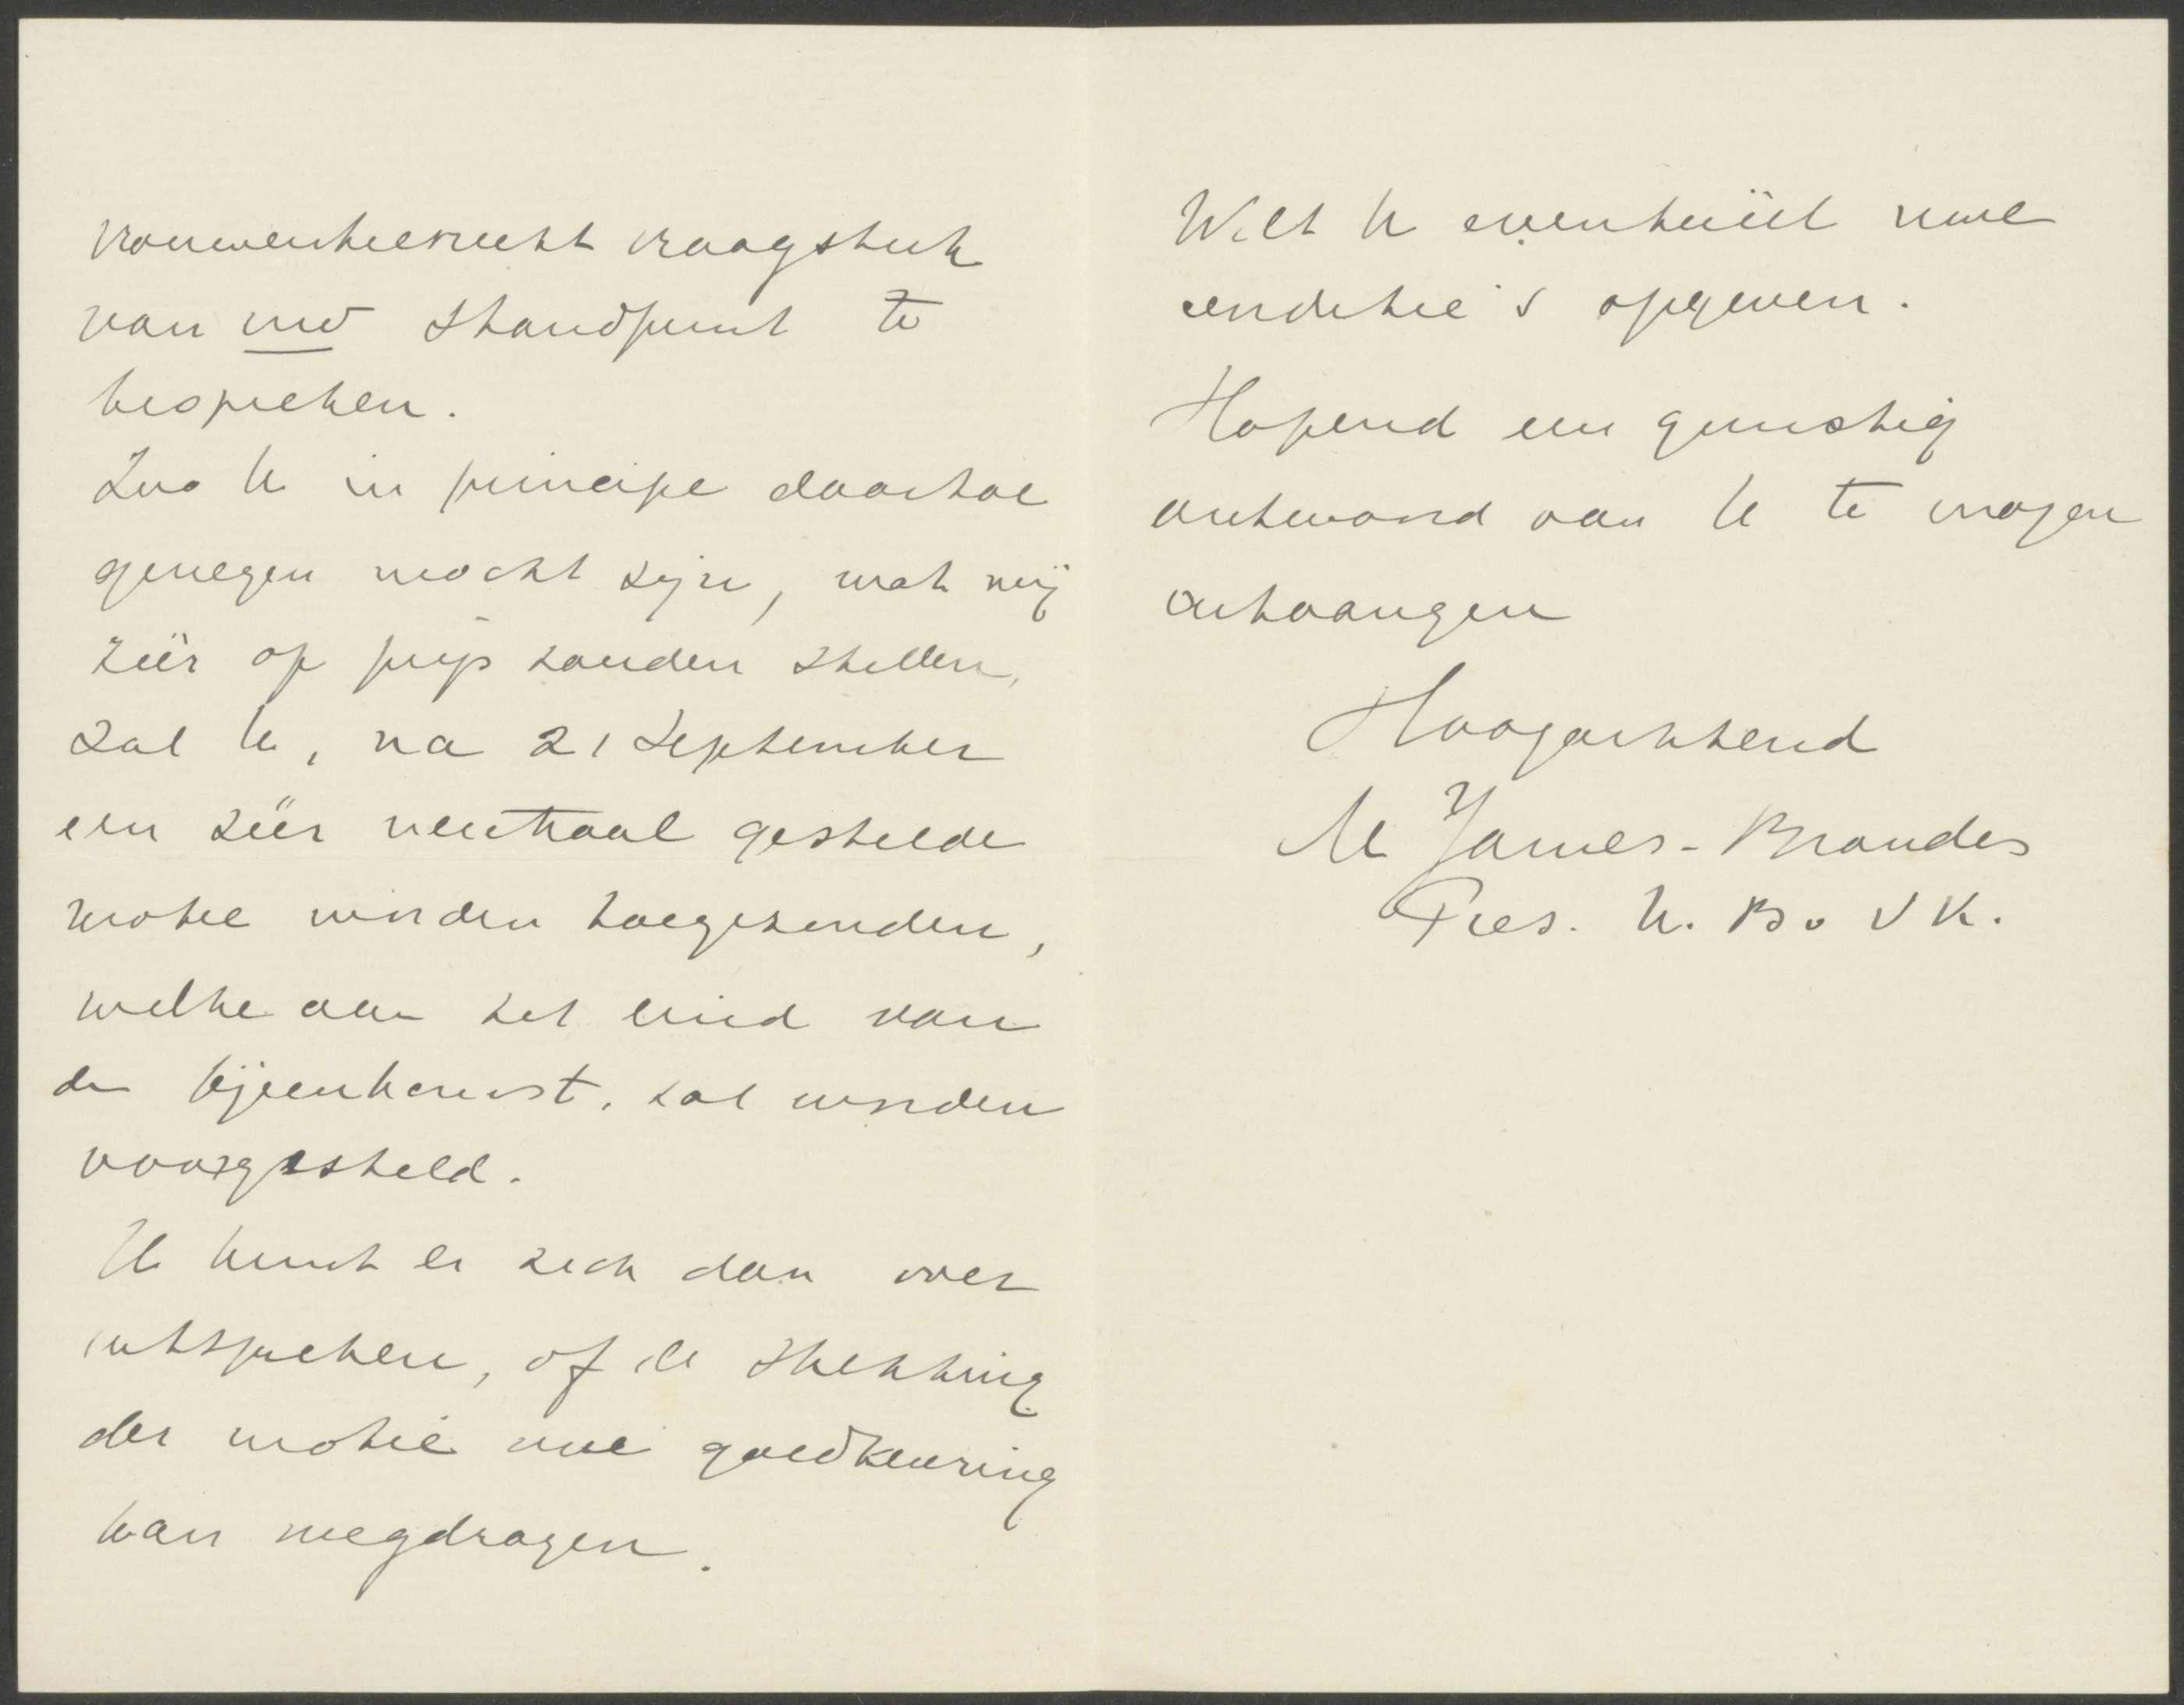 vrouwenkiesrecht vraagstuk
van uw standpunt te
bespreken.
Zoo U in principe daartoe
genegen mocht zijn, wat wij
zéér op prijs zouden stellen,
zal U, na 21 September
een zéér neutraal gestelde
motie worden toegezonden,
welke aan het eind van
de bijeenkomst, zal worden
voorgesteld.
U kunt er zich dan over
uitspreken, of de strekking
der motie uwe goedkeuring
kan wegdragen.
Wilt U eventuëel uwe
conditie's opgeven.
Hopend een gunstig
antwoord van U te mogen
ontvangen
Hoogachtend
M James-Brandes
Pres. N. B. v V K.